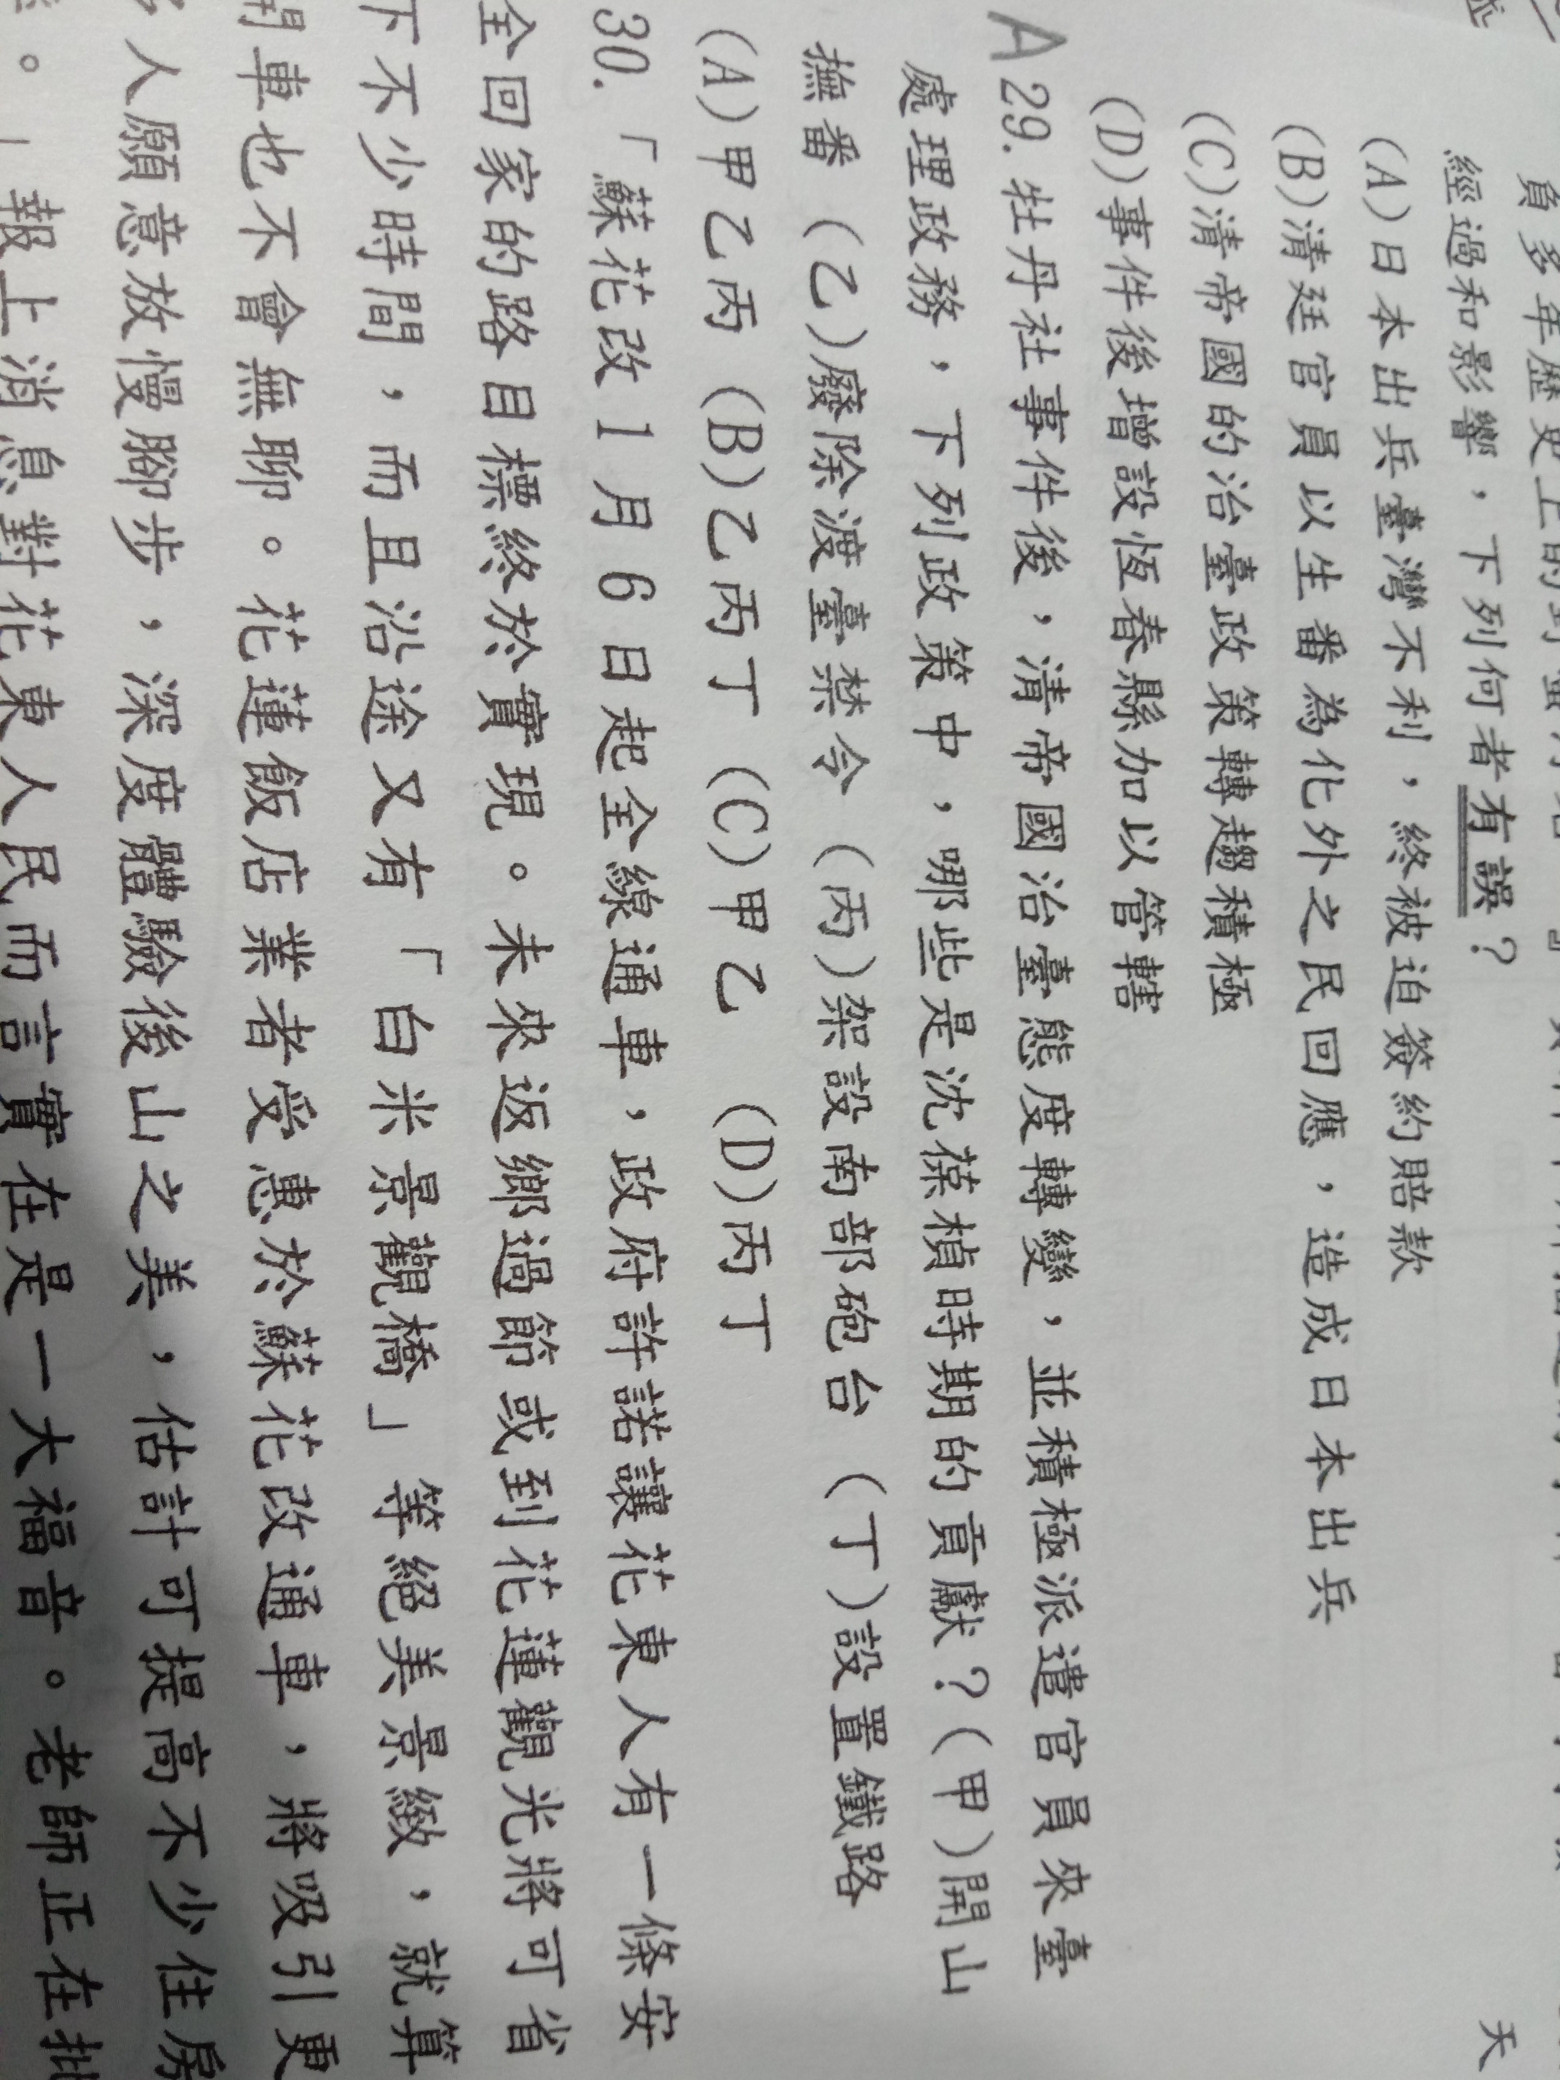 經過和影響，下列何者有誤？
(A)日本出兵臺灣不利，終被迫簽約賠款
(B)清廷官員以生番為化外之民回應，造成日本出兵
(C)清帝國的治臺政策轉趨積極
(D)事件後增設恆春縣加以管轄
A 29. 牡丹社事件後，清帝國治臺態度轉變，並積極派遣官員來臺
處理政務，下列政策中，哪些是沈葆楨時期的貢獻？(甲)開山
撫番 (乙)廢除渡臺禁令 (丙)架設南部砲台 (丁)設置鐵路
(A)甲乙丙 (B)乙丙丁 (C)甲乙 (D)丙丁
30.「蘇花改 1 月 6 日起全線通車，政府許諾讓花東人有一條安
全回家的路目標終於實現。未來返鄉過節或到花蓮觀光將可省
下不少時間，而且沿途又有「白米景觀橋」等絕美景緻，就算
開車也不會無聊。花蓮飯店業者受惠於蘇花改通車，將吸引更
多人願意放慢腳步，深度體驗後山之美，估計可提高不少住房
。」報上消息對花東人民而言實在是一大福音。老師正在批
天